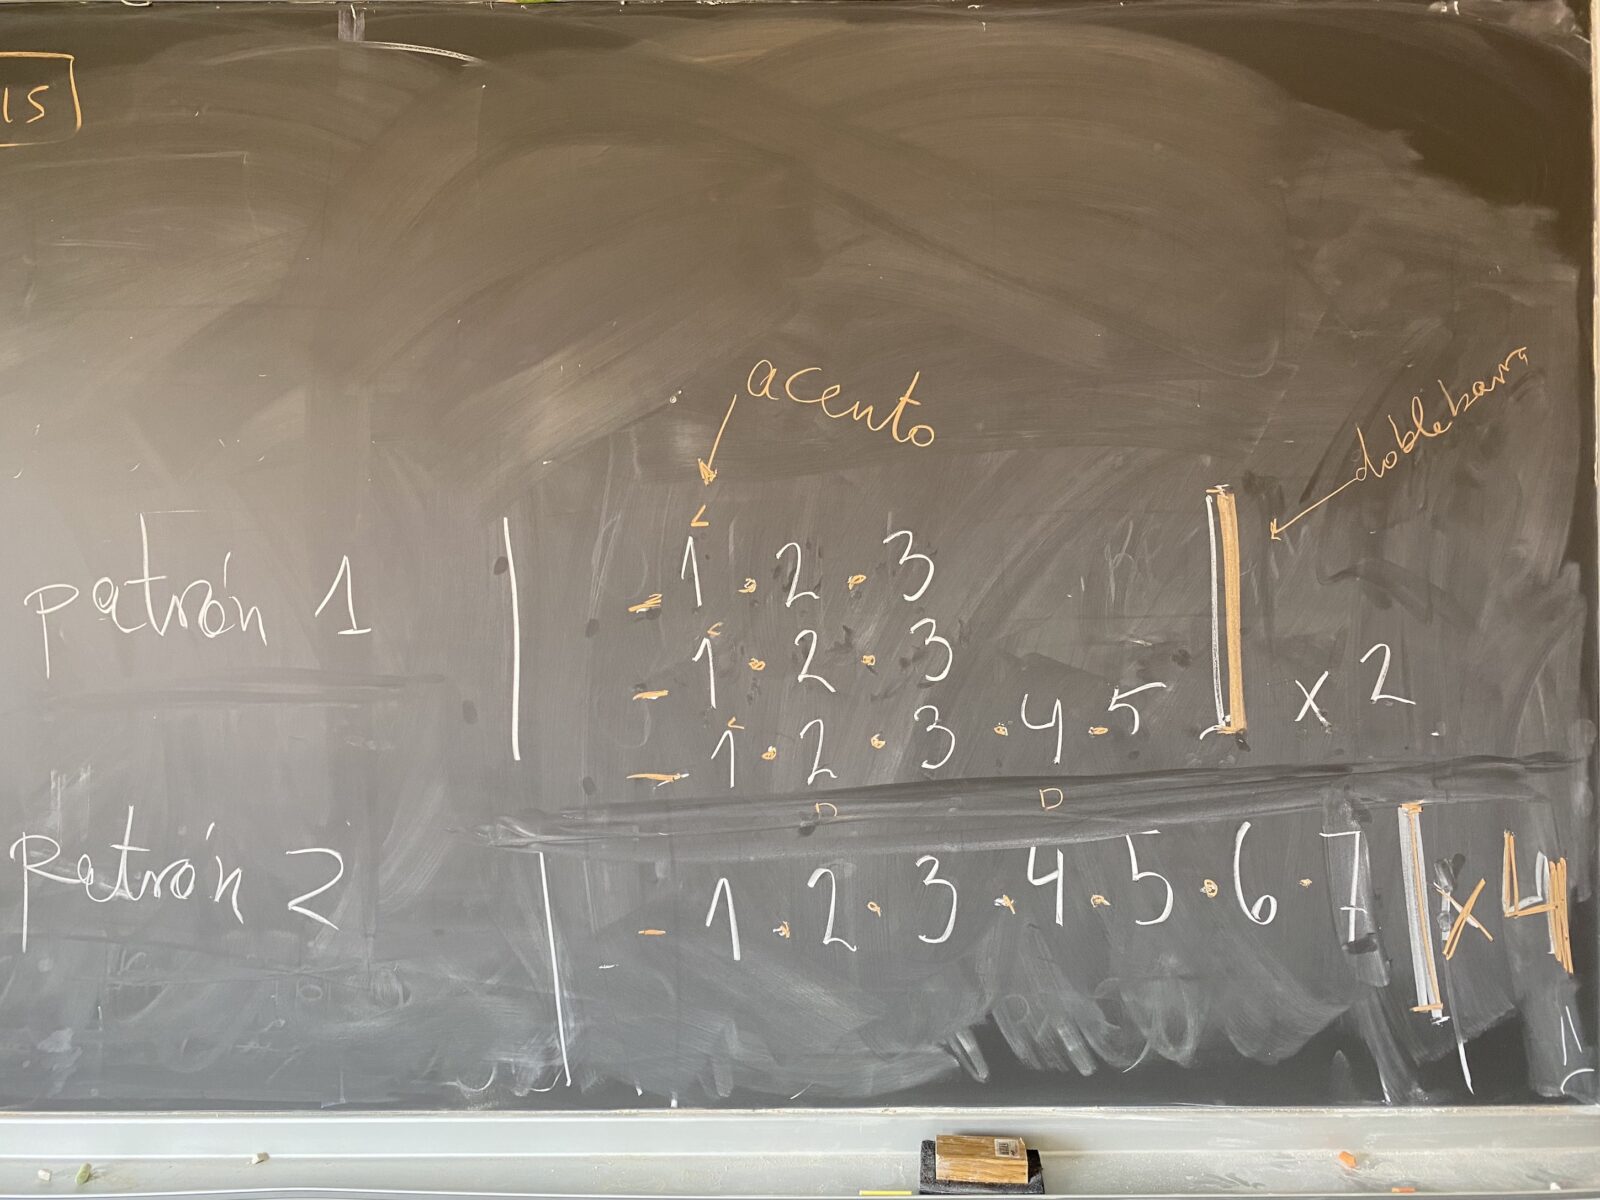 15
acento
doble barra
patrón 1 | - 1 . 2 . 3
- 1 . 2 . 3
- 1 . 2 . 3 . 4 . 5 || x 2
D D
Patrón 2 | - 1 . 2 . 3 . 4 . 5 . 6 . 7 || x 4